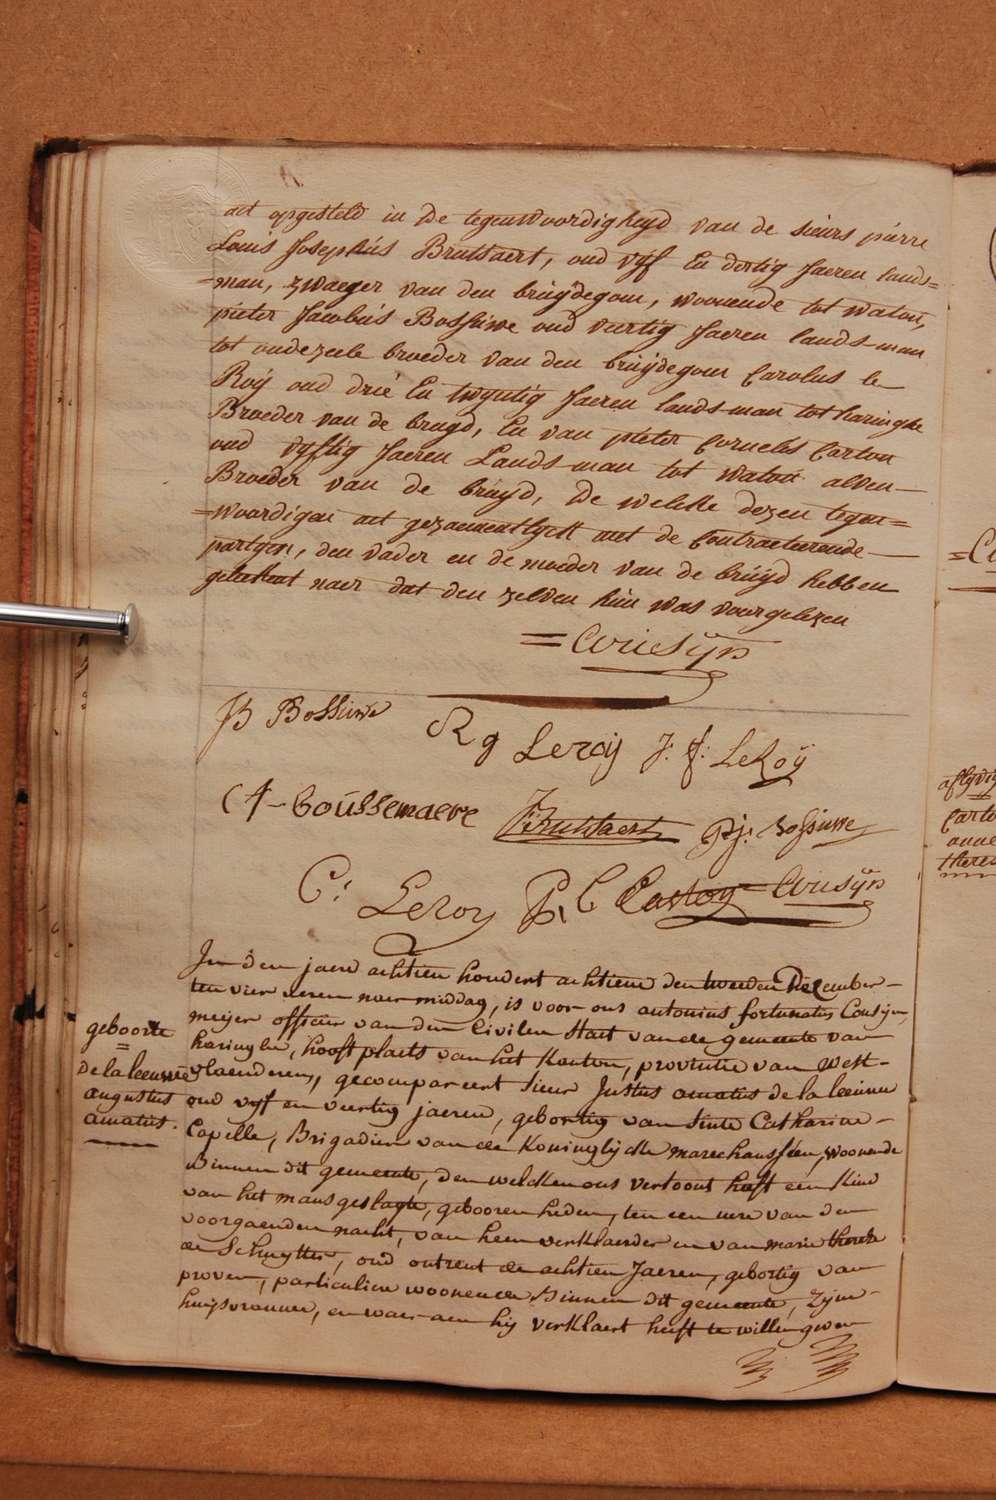 act opgesteld in de tegenwoordigheyd van de sieurs pierre
Louis Josephus Bruttaert, oud vyf en dertig Jaeren lands=
=man, zwaeger van den bruijdegom, woonende tot watou,
pieter Jacobus Bossuwe oud veertig Jaeren landsman
tot oudezeele broeder van den bruijdegom Carolus le
Roij oud drie en twyntig Jaeren landsman tot haringhe
Broeder van de bruyd, En van pieter Cornelis Carton
oud vyftig Jaeren Landsman tot watou alven
Broeder van de bruijd, de welke dezen tegen=
=woordigen act gezaementlyck met de Contracteerende
partyen, den vader en de moeder van de bruijd hebben
geteekent naer dat den zelven hun was voorgelezen
= Cousijn
JB Bossuwe
R g Leroij J: f: LeRoij
C A Coussemaere
Bruttaert
P:j: Bossuwe
C: Leroy
P, C Carton
Cousijn
In den jaere achtien hondert achtiene den tweeden December
ten vier ueren naer middag, is voor ons antonius fortunatus Cousijn,
meijer officier van den Civilen Staet van de gemeente van
haringhe, hooft plaets van het Kanton, provintie van West-
geboorte
=
de la leeuwe
augustus
amatus.
vlaenderen, gecompareert sieur Justus amatus de la leeuwe
oud vyf en veertig jaeren, gebortig van Sinte Catharine-
Capelle, Brigadier van de Koninglijcke marechaussëen, woonende
Binnen dit gemeente, den welcken ons vertoont heeft een Kind
van het mans geslagte, gebooren heden, ten een uere van den
voorgaenden nacht, van hem verklaerder en van marie therese
de Schuytter, oud ontrent de achtien Jaeren, gebortig van
proven, particuliere woonende Binnen dit gemeente, Zijne
huijsvrouwe, en waer aen hij verklaert heeft te willen geven
=Co
aflyvi
Carto
anne
theres